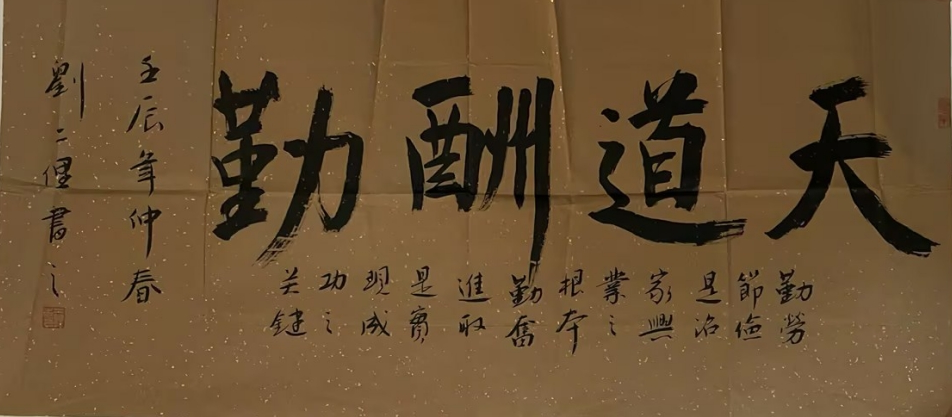 天道酬勤
勤勞
節儉
是治
家興
業之
根本
勤奮
進取
是實
現成
功之
关鍵
壬辰年仲春
劉二俚書之